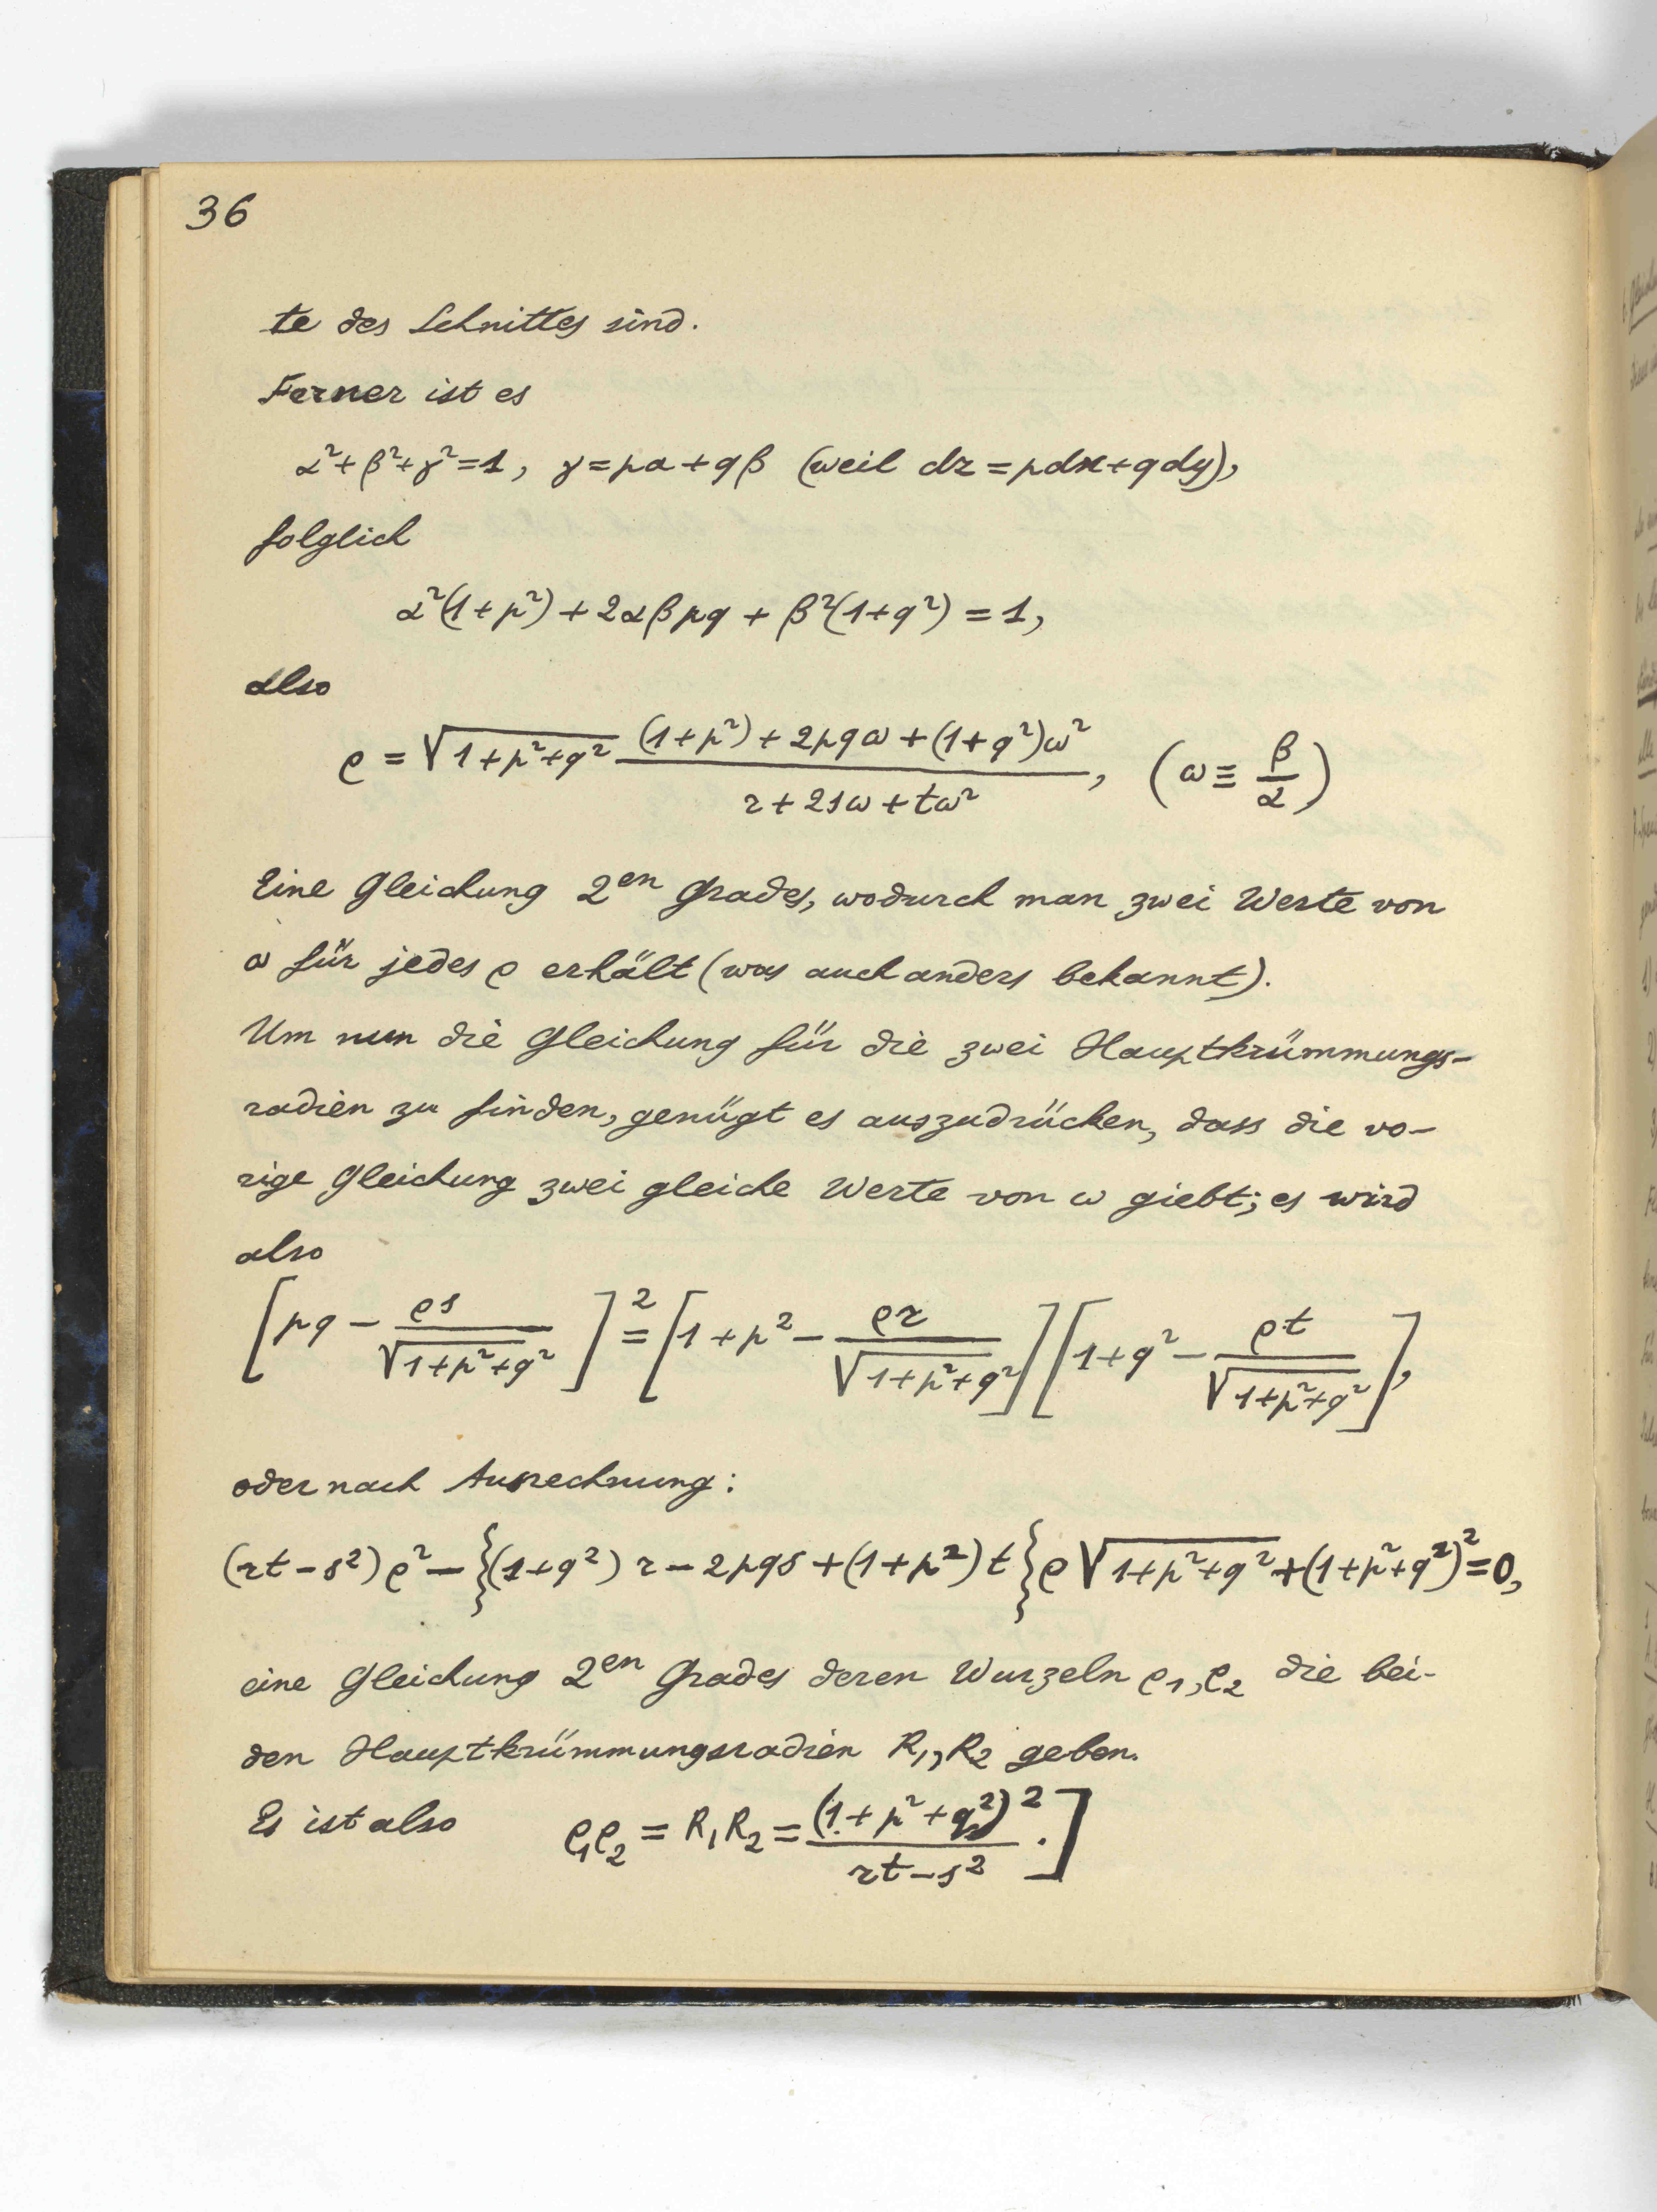 36
te des Schnittes sind.
Ferner ist es
α²+β²+γ²=1, γ=pα+qβ (weil dz=pdx+qdy),
folglich
α²(1+p²)+2αβpq+β²(1+q²)=1,
also
ρ = √(1+p²+q²) ((1+p²)+2pqω+(1+q²)ω²)/(r+2sω+tω²), (ω≡β/α)
Eine Gleichung 2en Grades, wodurch man zwei Werte von
ω für jedes ρ erhält (was auch anders bekannt).
Um nun die Gleichung für die zwei Hauptkrümmungs-
radien zu finden, genügt es auszudrücken, dass die vo-
rige Gleichung zwei gleiche Werte von ω giebt; es wird
also
[pq − ρs/√(1+p²+q²)]² = [1+p² − ρr/√(1+p²+q²)][1+q² − ρt/√(1+p²+q²)],
oder nach Ausrechnung:
(rt−s²)ρ² − {(1+q²)r−2pqs+(1+p²)t}ρ√(1+p²+q²)+(1+p²+q²)²=0,
eine Gleichung 2en Grades deren Wurzeln ρ₁,ρ₂ die bei-
den Hauptkrümmungsradien R₁,R₂ geben.
Es ist also ρ₁ρ₂ = R₁R₂ = (1+p²+q²)²/(rt−s²).]